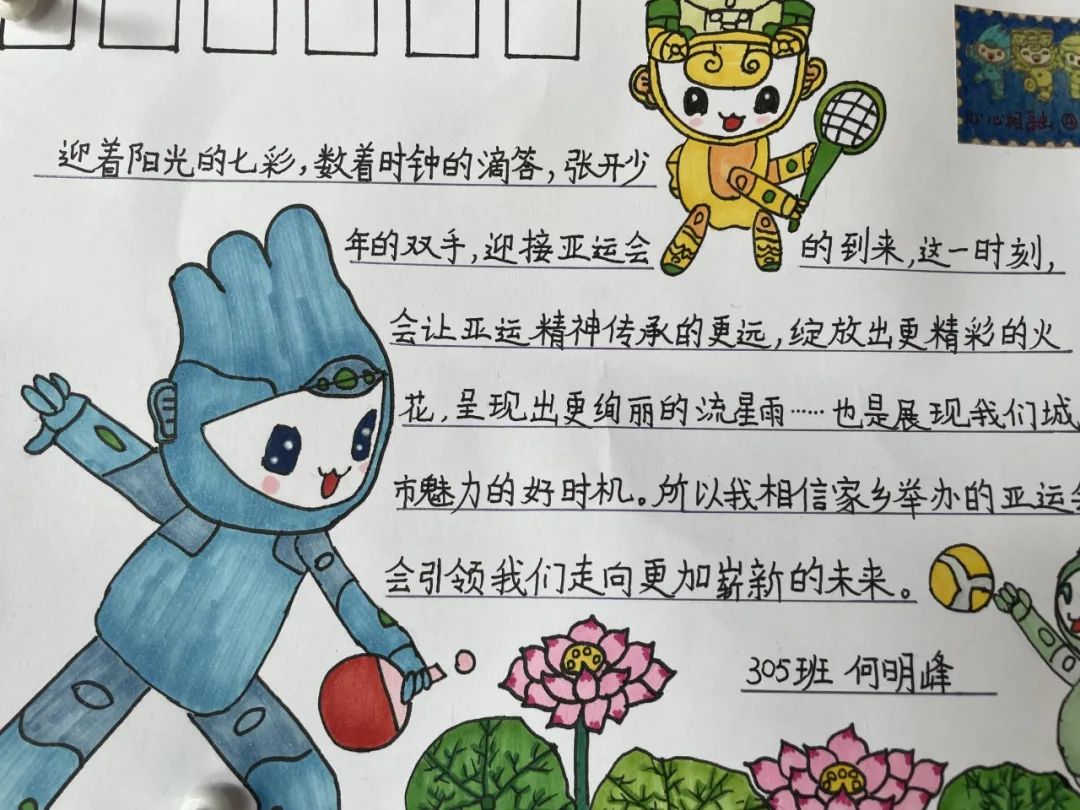 迎着阳光的七彩，数着时钟的滴答，张开少
年的双手，迎接亚运会的到来，这一时刻，
会让亚运精神传承的更远，绽放出更精彩的火
花，呈现出更绚丽的流星雨……也是展现我们城
市魅力的好时机。所以我相信家乡举办的亚运会
会引领我们走向更加崭新的未来。
305班 何明峰
心心相融，@